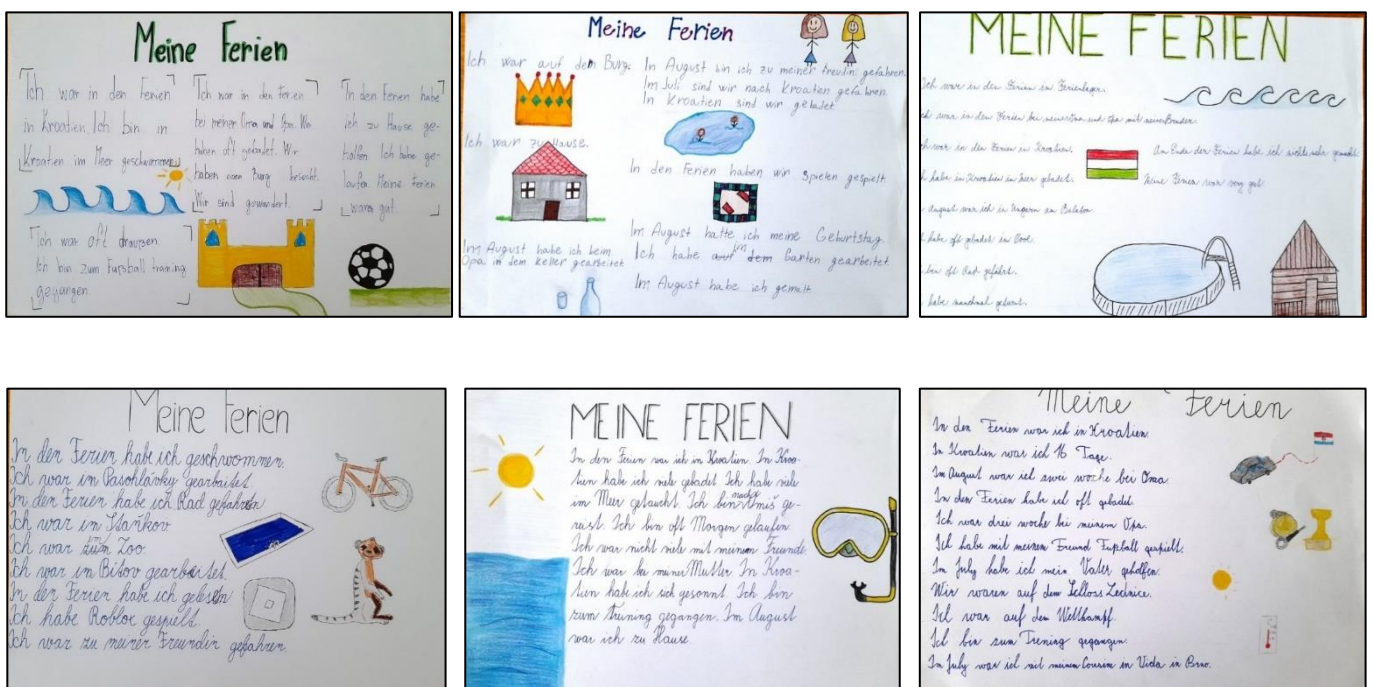 Meine Ferien
Ich war in den Ferien
in Kroatien. Ich bin in
Kroatien im Meer geschwommen
Ich war oft draußen
Ich bin zum Fußball training
gegangen
Ich war in den Ferien
bei meiner Oma und Opa. Wir
haben oft gebadet. Wir
haben eine Burg besucht.
Wir sind gewandert.
In den Ferien habe
ich zu Hause ge-
holfen Ich habe ge-
laufen Meine Ferien
waren gut.
Meine Ferien
Ich war auf dem Burg.
Ich war zu Hause.
Im August habe ich beim
Opa in dem Keller gearbeitet
In August bin ich zu meiner Freudin gefahren.
Im Juli sind wir nach Kroatien gefahren.
In Kroatien sind wir gebadet
In den Ferien haben wir Spielen gespielt
Im August hatte ich meine Geburtstag.
Ich habe im dem Garten gearbeitet
Im August habe ich gemalt
MEINE FERIEN
Ich war in den Ferien im Ferienlager.
Ich war in den Ferien bei meine Oma und Opa mit meine Bruder.
Ich war in den Ferien in Kroatien.
habe in Kroatien in Meer gebadet.
August war ich in Ungarn am Balaton.
habe oft gebadet im Pool.
bin oft Rad gefahrt.
habe manchmal geturnt.
Am Ende der Ferien habe ich nichts mehr gemacht.
Meine Ferien war very gut.
Meine Ferien
In den Ferien habe ich geschwommen.
Ich war im Pasohlávky gearbaitet
In den Ferien habe ich Rad gefahren
Ich war im Staňkov
Ich war im Zoo.
Ich war im Bítov gearbeitet.
In der Ferien habe ich gelesen
Ich habe Roblox gespielt.
Ich war zu meiner Freundin gefahren.
MEINE FERIEN
In den Ferien war ich in Kroatien. In Kroa-
tien habe ich viele gebadet Ich habe viele
im Meer getaucht. Ich bin nach Omiš ge-
reist. Ich bin oft Morgen gelaufen
Ich war nicht viele mit meinem Freunde.
Ich war bei meiner Mutter. In Kroa-
tien habe ich sich gesonnt. Ich bin
zum training gegangen. Im August
war ich zu Hause.
Meine Ferien
In den Ferien war ich in Kroatien.
In Kroatien war ich 16 Tage.
Im August war ich zwei woche bei Oma.
In den Ferien habe ich oft gebadet.
Ich war drei woche bei meinem Opa.
Ich habe mit meinen Freund Fußball gespielt.
Im July habe ich mein Vater geholfen.
Wir waren auf dem Schloss Lednice.
Ich war auf den Wettkampf.
Ich bin zum Trening gegangen.
Im July war ich mit meinen Cousem in Vida in Brno.